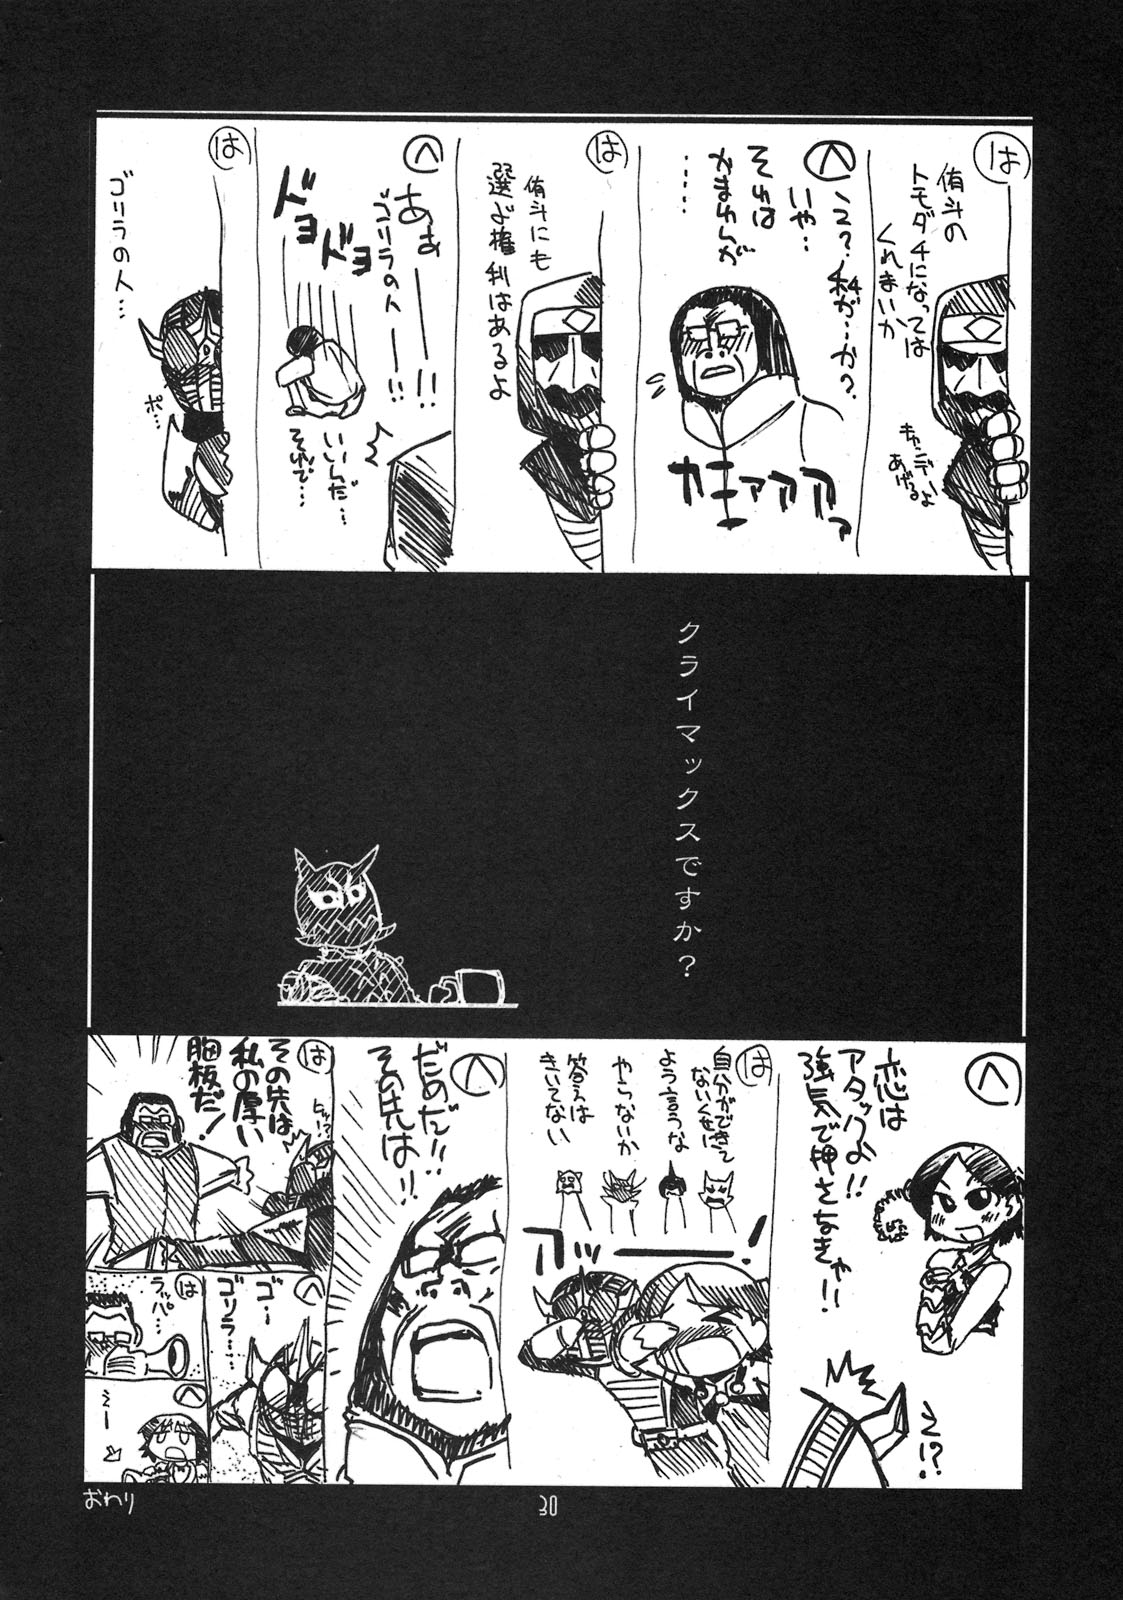 は
侑斗の
トモダチになっては
くれまいか
キャンデーよ
あげる
へ
え?私が…か?
いや…
それは
かまわんが
……
カァァァァ
は
侑斗にも
選ぶ権利はあるよ
へ
あぁーー!!
ゴリラの人ーー!!
ドヨドヨ
いいんだ…
それで…
は
ゴリラの人…
ポ…
クライマックスですか?
へ
恋は
アタックよ!!
強気で押さなきゃ!!
え!?
は
自分ができて
ないくせに
よう言うな
やらないか
答えは
きいてない
アッー!
へ
だめだ!!
その先は!!
は
その先は
私の厚い
胸板だ!
へ
ゴ…
ゴリラ……
は
ラッパ…
へ
えー
おわり
30